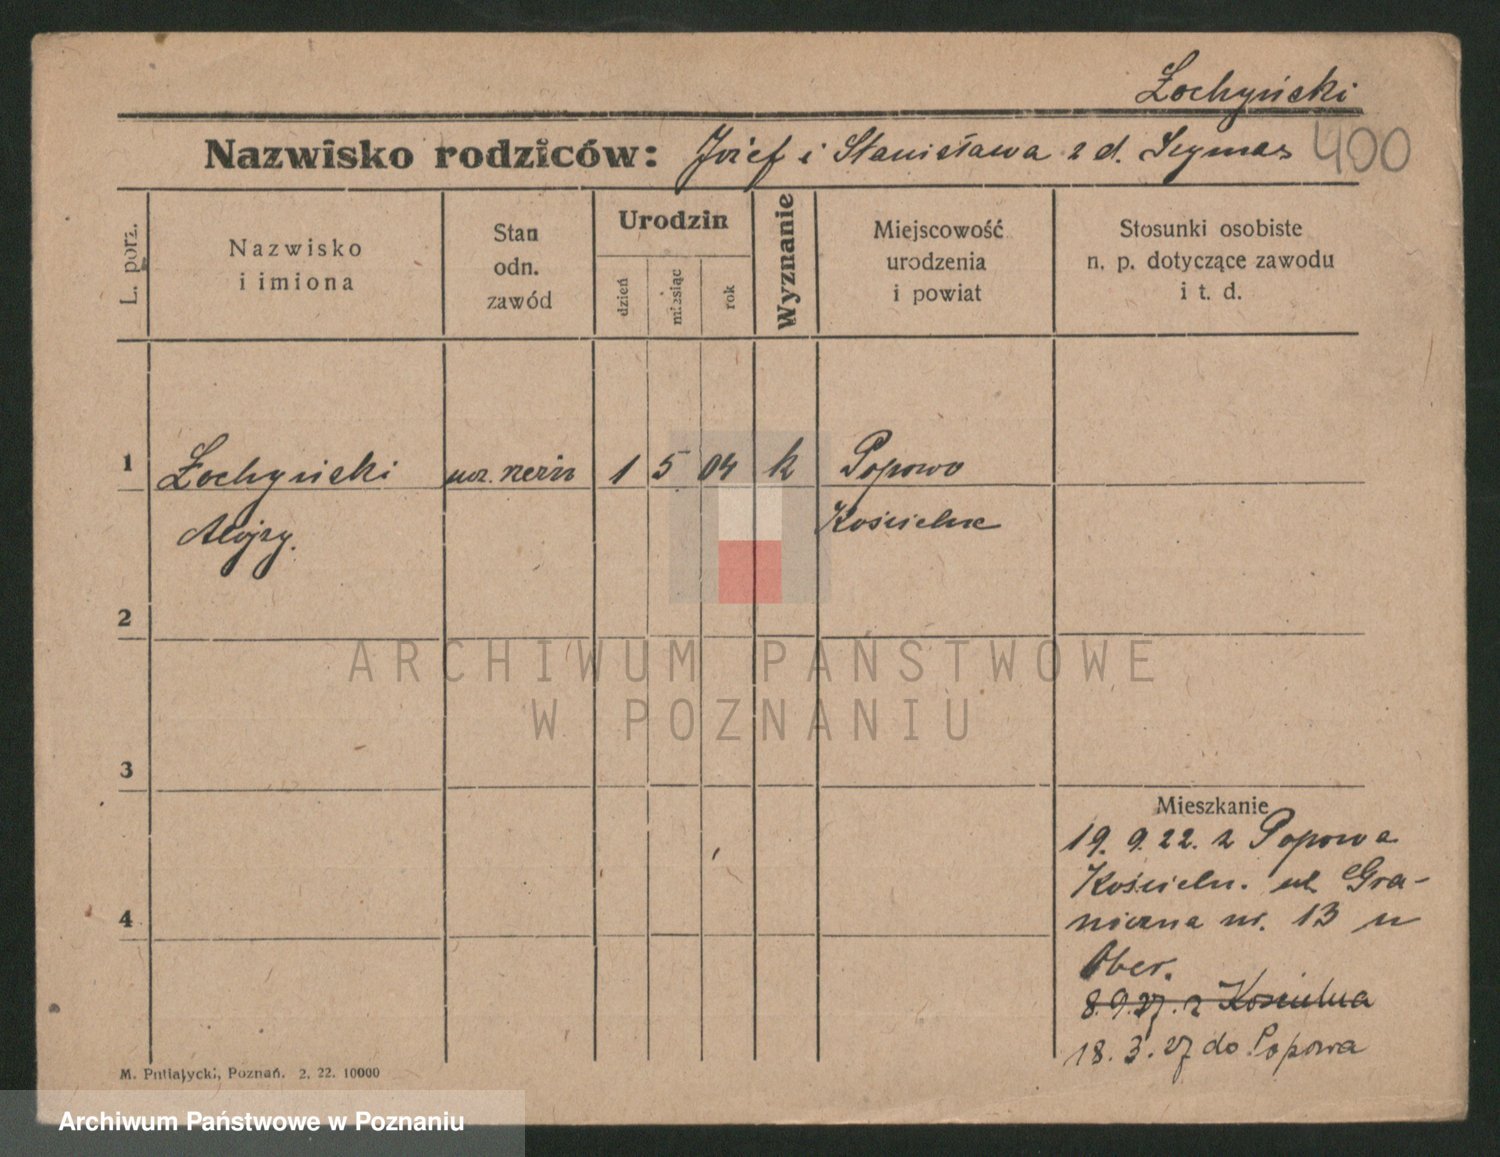 Żochyński
Nazwisko rodziców: Józef i Stanisława z d. Szymas 400
L. porz.
Nazwisko
i imiona
Stan
odn.
zawód
Urodzin
dzień
miesiąc
rok
Wyznanie
Miejscowość
urodzenia
i powiat
Stosunki osobiste
n. p. dotyczące zawodu
i t. d.
1 Żochyński ucz. 1 5 04 k Popowo
Alojzy. Kościelne
2
3
4
Mieszkanie
19. 9. 22. z Popowa
Kościeln. ul. Gra-
niczna nr. 13 u
Ober.
8.9.27. z Kościelna
18. 3. 27 do Popowa
M. Putiatycki, Poznań. 2. 22. 10000
ARCHIWUM PAŃSTWOWE
W POZNANIU
Archiwum Państwowe w Poznaniu